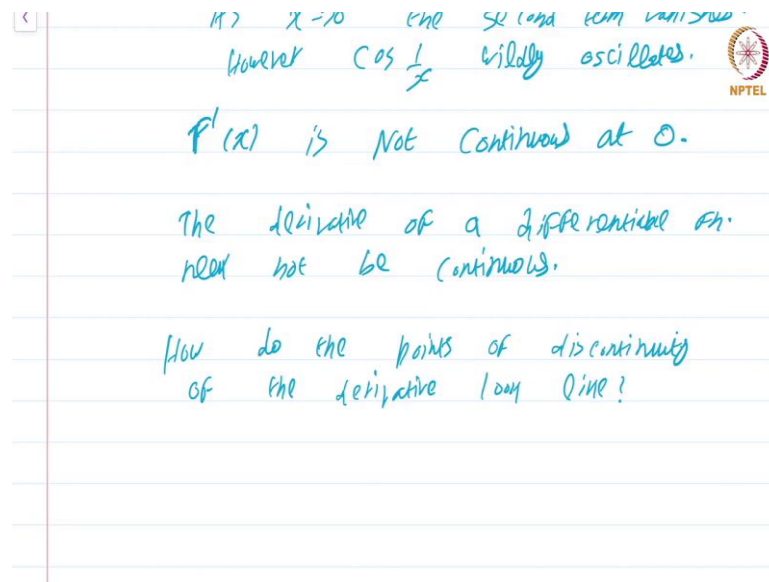 As x→0 the second term vanishes.
However cos 1/x wildly oscillates.
NPTEL
F'(x) is Not Continuous at 0.
The derivative of a differentiable fn.
need not be continuous.
How do the points of discontinuity
of the derivative look like?